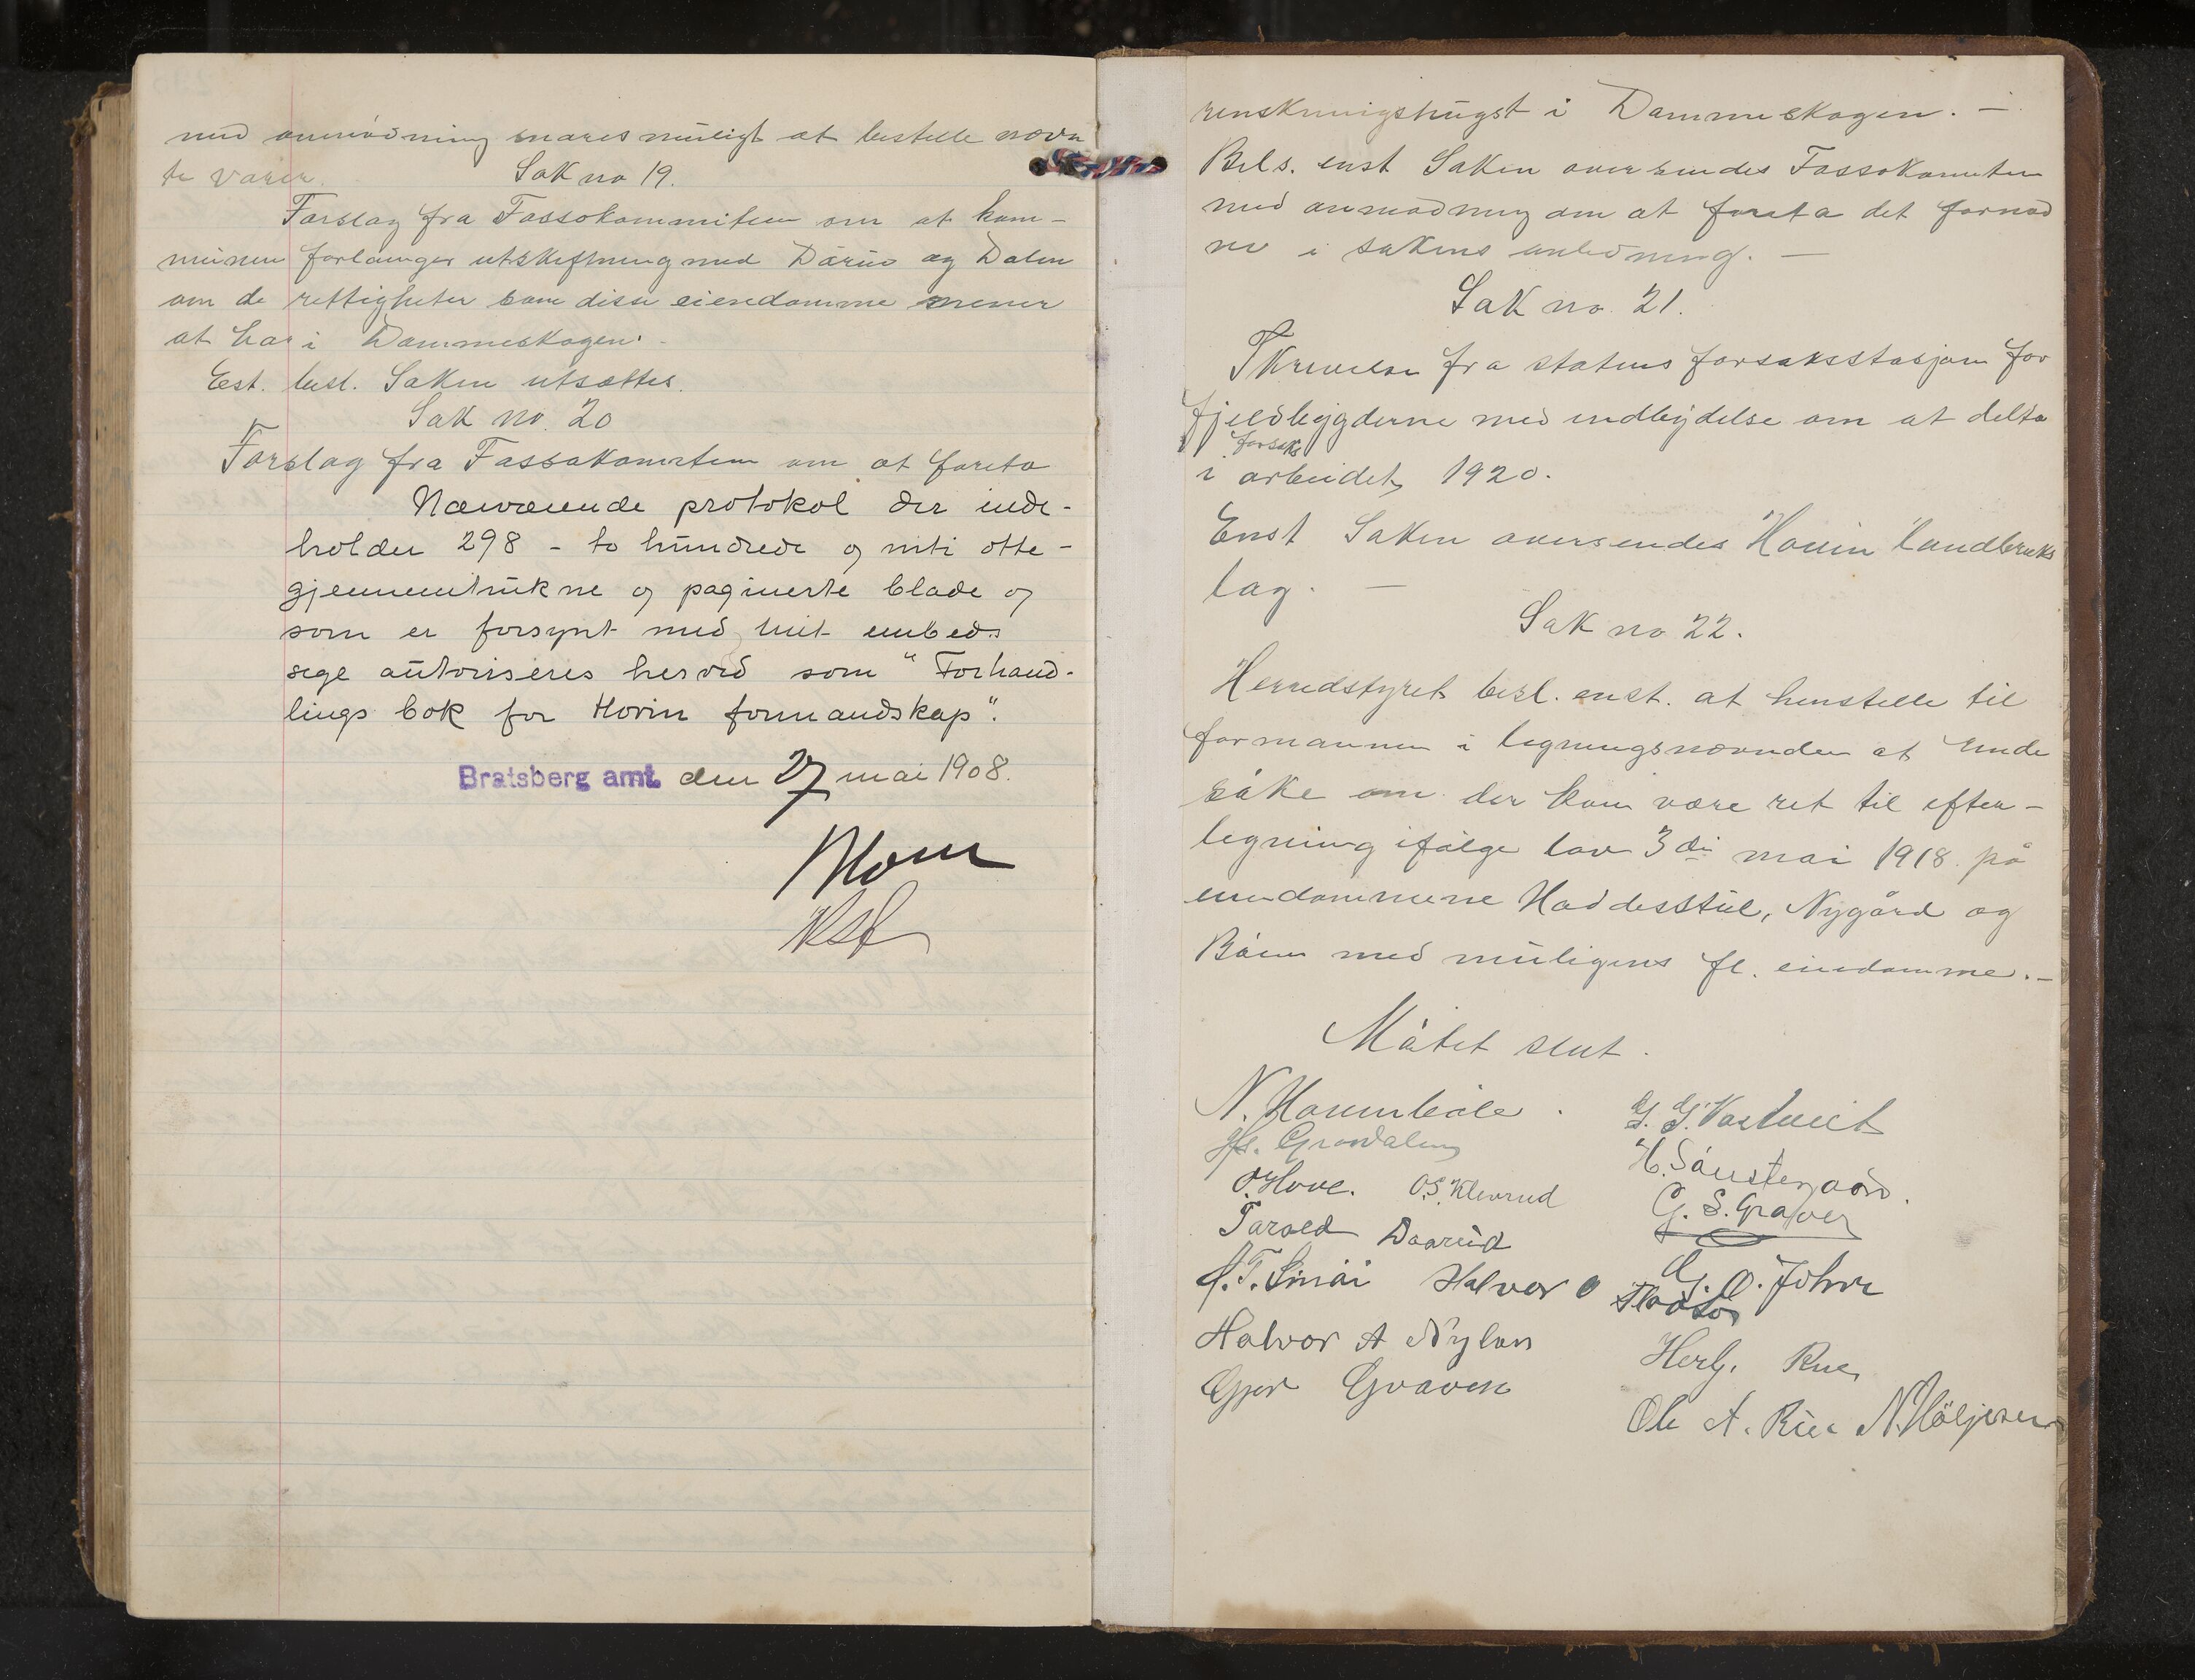 med anmodning snares muligt at bestelle nævn
te varer.
Sak no 19.
Forslag fra Fossokommiteen om at kom-
munen forlanger utskiftning med Dårud og Dalen
om de rettigheter som disse eiendomme mener
at ha i Dammeskogen.
Est. besl. Saken utsættes.
Sak no. 20
Forslag fra Fassokomiteen om at foreta
Nærværende protokol der inde-
holder 298 - to hundrede og nitti otte -
gjennemtrukne og paginerte blade og
som er forsynt med mit embeds
segl autoriseres herved som "Forhand-
lings bok for Hovin formandskap".
Bratsberg amt. den 27 mai 1908.
renskningshugst i Dammeskogen. -
Bels. enst Saken oversendes Fossokomiten
med anmodning om at foreta det fornød
ne i sakens anledning. -
Sak no. 21.
Skrivelse fra statens forsøksstasjon for
fjeldbygderne med indbydelse om at delta
forsøks
i arbeidet, 1920.
Enst Saken oversendes Hovin landbruks
lag. -
Sak no 22.
Herredstyret besl. enst. at henstelle til
formannen i ligningsnævnden at unde
søke om der kan være ret til efter-
ligning ifølge lov 3 die mai 1918 på
eiendommene Haddesstul, Nygård og
Båen med muligens fl. eiendomme. -
Møtet slut.
N. Hovinbøle.
G. G. Vastveit
Grovdalen
H. Sønstegaard.
O. Hove.
O. S. Klevrud
G. S. Graver
Tarald Daarud
G. O. Johre
Halvor O
Halvor A Nylan
Herlg. Rue,
Gjer Graven
Ole A. Rue N. Høljesen